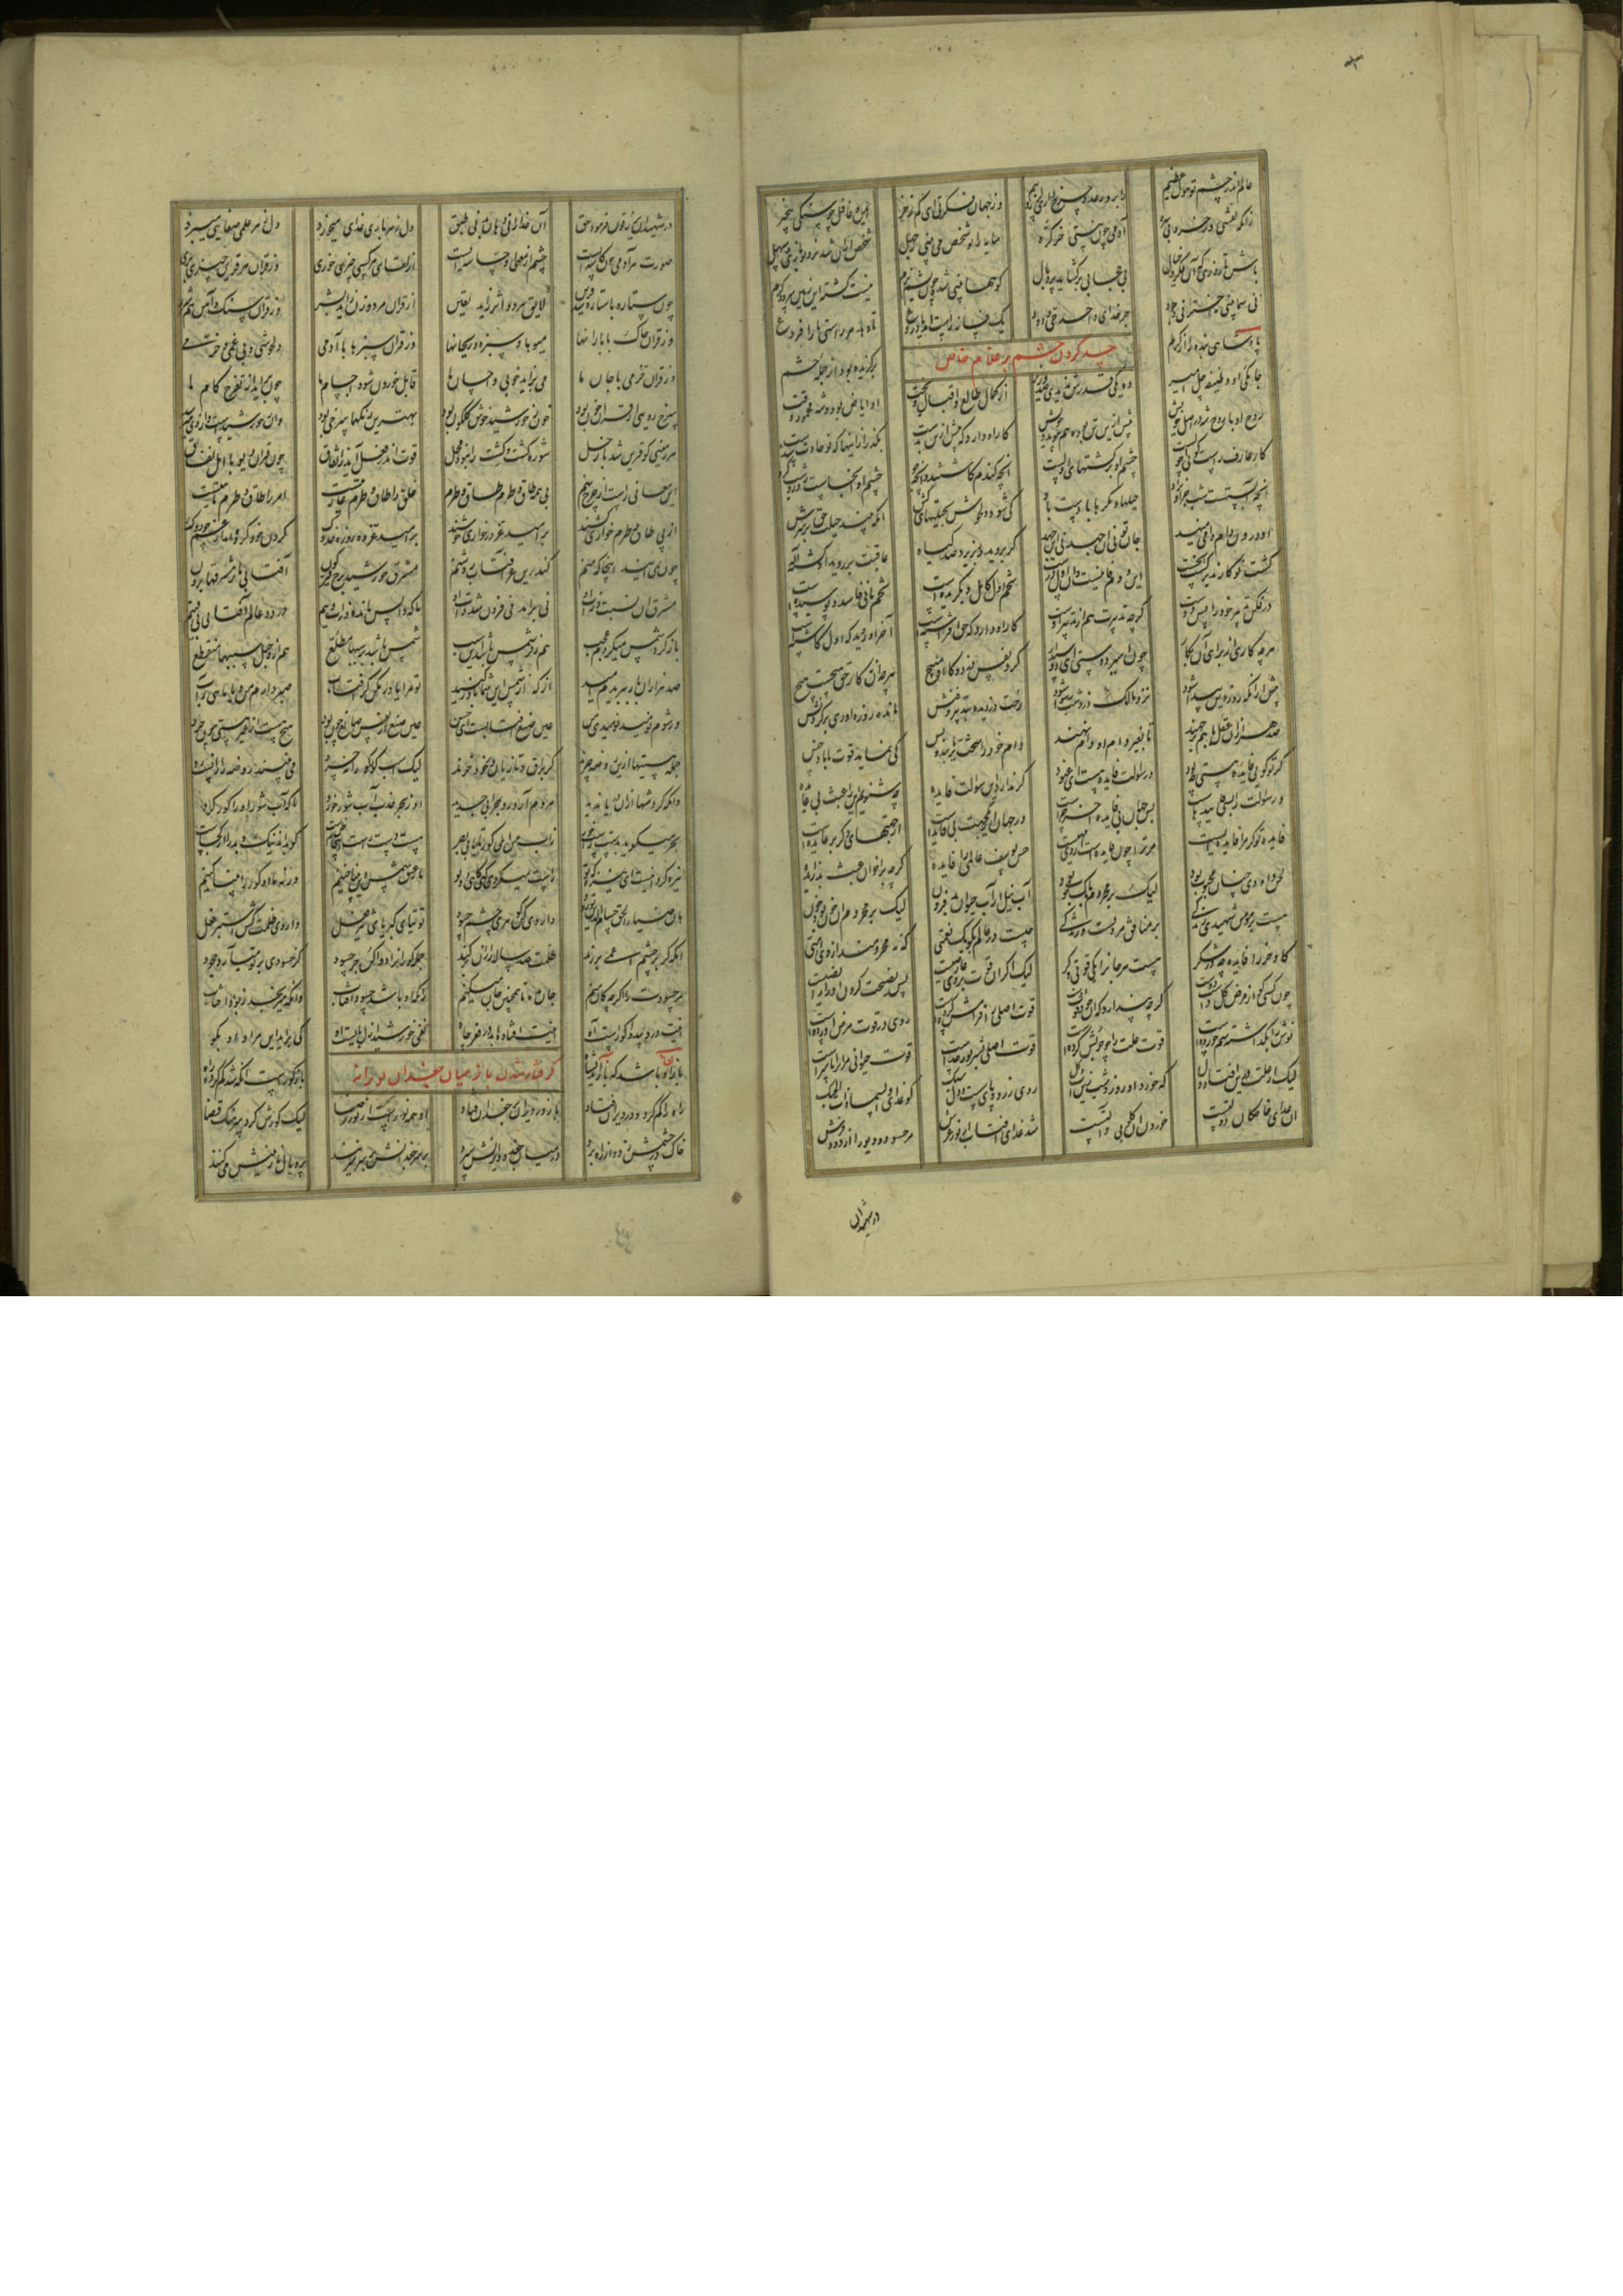 عالم اندر چشم تو هول و عظیم ز ابر و رعد و چرخ داری لرز و بیم وز جهان فکرتی ای کم ز خر ایمن و غافل چو سنگی بیخبر
زانکه نقشی وز خرد بی بهره آدمی خو نیستی خر کره سایه را تو شخص می بینی ز جهل شخص از آن شد نزد تو بازی و سهل
باش تا روزی که آن فکر و خیال بی حجابی برگشاید پر و بال کوهها بینی شده چون پشم نرم نیست گشته این زمین سرد و گرم
نی سما بینی نه اختر نی وجود جز خدای واحد حی و دود یک فسانه راست آمد یا دروغ تا دهد مر راستی ها را فروغ
حسد کردن حشم بر غلام خاص
پادشاهی بنده را از کرم برگزیده بود از جمله حشم
جامگی او وظیفه چل امیر ده یکی قدرش ندیدی صد وزیر از کمال طالع و اقبال و بخت او ایازی بود و شه محمود وقت
روح او با روح شه در اصل خویش پیش ازین تن بوده هم پیوند و خویش کار آن دارد که پیش از تن بدست بگذر از اینها که نو حادث شدست
کار عارف راست کو نی احولست چشم او بر کشتهای اولست آنچه گندم کاشتند و آنچه جو چشم او آنجاست روز و شب گرو
آنچه آبستست شب جز آن نزاد حیلها و مکرها بادست باد کی شود دل خوش بحیلتهای کش آنکه بیند حیلت حق بر سرش
او درون دام دامی می نهد جان تو نی آن جهد نی این جهد گر بروید ور بریزد صد گیاه عاقبت بر روید آن کشته اله
کشت نو کارند بر کشت نخست این دوم فانیست وان اول درست تخم اول کامل و بگزیده است تخم ثانی فاسد و پوسیده است
در فکن تدبیر خود را پیش دوست گرچه تدبیرت هم از تدبیر اوست کار آن دارد که حق افراشتست آخر آن روید که اول کاشتست
هرچه کاری از برای آن بکار چون اسیر دوستی ای دوستدار گرد نفس دزد و کار او مپیچ هرچه آن نه کار حق هیچست هیچ
پیش از آنکه روز دین پیدا شود نزد مالک دزد شب رسوا شود رخت دزدیده بتدبیر و فنش مانده روز داوری بر گردنش
صد هزاران عقل با هم بر جهند تا بغیر دام او دامی نهند دام خود را سخت تر یابند و بس کی نماید قوت با باد خس
گر تو گویی فایده هستی چه بود در سؤالت فایده هست ای عنود گر ندارد این سؤالت فایده چه شنویم این را عبث بی عایده
ور سؤالت را بسی فایدهاست پس جهان بی فایده آخر چراست ور جهان از یک جهت بی فایده است از جهتهای دگر پر عایده است
فایده تو گر مرا فایده نیست مر ترا چون فایده است از وی مه ایست حسن یوسف عالمی را فایده گرچه بر اخوان عبث بد زایده
لحن داودی چنان محبوب بود لیک بر محروم بانگ چوب بود آب نیل از آب حیوان بد فزون لیک بر محروم و منکر بود خون
هست بر مؤمن شهیدی زندگی بر منافق مردنست و ژندگی چیست در عالم بگو یک نعمتی که نه محرومند از وی امتی
گاو و خر را فایده چه در شکر هست هر جانرا یکی قوتی دگر لیک اگر آن قوت بر وی عارضیست پس نصیحت کردن او را رایضیست
چون کسی کو از مرض گل داشت دوست گرچه پندارد که آن خود قوت اوست قوت اصلی را فرامش کرده است روی در قوت مرض آورده است
نوش را بگذاشته سم خورده است قوت علت را چو چوبش کرده است قوت اصلی بشر نور خداست قوت حیوانی مر او را ناسزاست
لیک از علت درین افتاد دل که خورد او روز و شب زین آب و گل روی زرد و پای سست و دل سبک کو غذای والسما ذات الحبک
آن غذای خاصگان دولتست خوردن آن بی گلو و آلتست شد غذای آفتاب از نور عرش مر حسود و دیو را از دود فرش
در شهیدان
در شهیدان یرزقون فرمود حق آن غذا را نی دهان بد نی طبق دل ز هر یاری غذایی میخورد دل ز هر علمی صفایی میبرد
صورت هر آدمی چون کاسه ایست چشم از معنی او حساسه ایست از لقای هر کسی چیزی خوری وز قران هر قرین چیزی بری
چون ستاره با ستاره شد قرین لایق هر دو اثر زاید یقین از قران مرد و زن زاید بشر وز قران سنگ و آهن هم شرر
وز قران خاک با بارانها میوها و سبزه و ریحانها وز قران سبزها با آدمی دلخوشی و بی غمی و خرمی
وز قران خرمی با جان ما می بزاید خوبی و احسان ما قابل خوردن شود اجسام ما چون برآید از تفرج کام ما
سرخ رویی از قران خون بود خون ز خورشید خوش گلگون بود بهترین رنگها سرخی بود وان ز خورشیدست و از وی میرسد
هر زمینی کو قرین شد با زحل شوره گشت و کشت را نبود محل قوت اندر فعل آید ز اتفاق چون قران دیو با اهل نفاق
این معانی راست از چرخ نهم بی همه طاق و طرم طاق و طرم خلق را طاق و طرم عاریتست امر را طاق و طرم ماهیتست
از پی طاق و طرم خواری کشند بر امید عز در خواری خوشند بر امید عز ده روزه خدوک گردن خود کرده اند از غم چو دوک
چون نمی آیند اینجا که منم کاندرین عز آفتاب روشنم مشرق خورشید برج قیرگون آفتاب ما ز مشرقها برون
مشرق او نسبت ذرات او نی برآمد نی فرو شد ذات او ما که واپس مانده ذرات وییم در دو عالم آفتابی بی فییم
باز گرد شمس میگردم عجب هم ز فر شمس باشد این سبب شمس باشد بر سببها مطلع هم ازو حبل سببها منقطع
صد هزاران بار ببریدم امید از که از شمس این شما باور کنید تو مرا باور مکن کز آفتاب صبر دارم من و یا ماهی ز آب
ور شوم نومید نومیدی من عین صنع آفتابست ای حسن عین صنع از نفس صانع چون برد هیچ هست از غیر هستی چون چرد
جمله هستیها ازین روضه چرند گر براق و تازیان ور خود خرند لیک اسب کور کورانه چرد می نبیند روضه را زانست رد
وانکه گردشها از آن دریا ندید هر دم آرد رو بمحرابی جدید او ز بحر عذب آب شور خورد تا که آب شور او را کور کرد
بحر میگوید بدست راست خور ز آب من ای کور تا یابی بصر هست دست راست اینجا ظن راست کو بداند نیک و بد را کز کجاست
نیزه گردانیست ای نیزه که تو راست میگردی گهی گاهی دوتو ما ز عشق شمس دین بی ناخنیم ورنه ما آن کور را بینا کنیم
هان ضیاء الحق حسام الدین تو زود داروش کن کوری چشم حسود توتیای کبریای تیز فعل داروی ظلمت کش استیز فعل
آنکه گر بر چشم اعمی بر زند ظلمت صد ساله را زو بر کند جمله کوران را دوا کن جز حسود کز حسودی بر تو می آرد جحود
مر حسودت را اگر چه آن منم جان مده تا همچنین جان میکنم آنکه او باشد حسود آفتاب وانکه میرنجد ز بود آفتاب
اینت درد بی دوا کوراست آه اینت افتاده ابد در قعر چاه نفی خورشید ازل بایست او کی برآید این مراد او بگو
گرفتار شدن باز میان جغدان بویرانه
باز آن باشد که باز آید بشاه باز کورست آنکه شد گم کرده راه
راه را گم کرد و در ویران فتاد باز در ویران بر جغدان فتاد او همه نورست از نور رضا لیک کورش کرد سرهنگ قضا
خاک در چشمش زد و از راه برد در میان جغد و ویرانش سپرد بر سری جغدانش بر سر میزنند پر و بال نازنینش می کنند